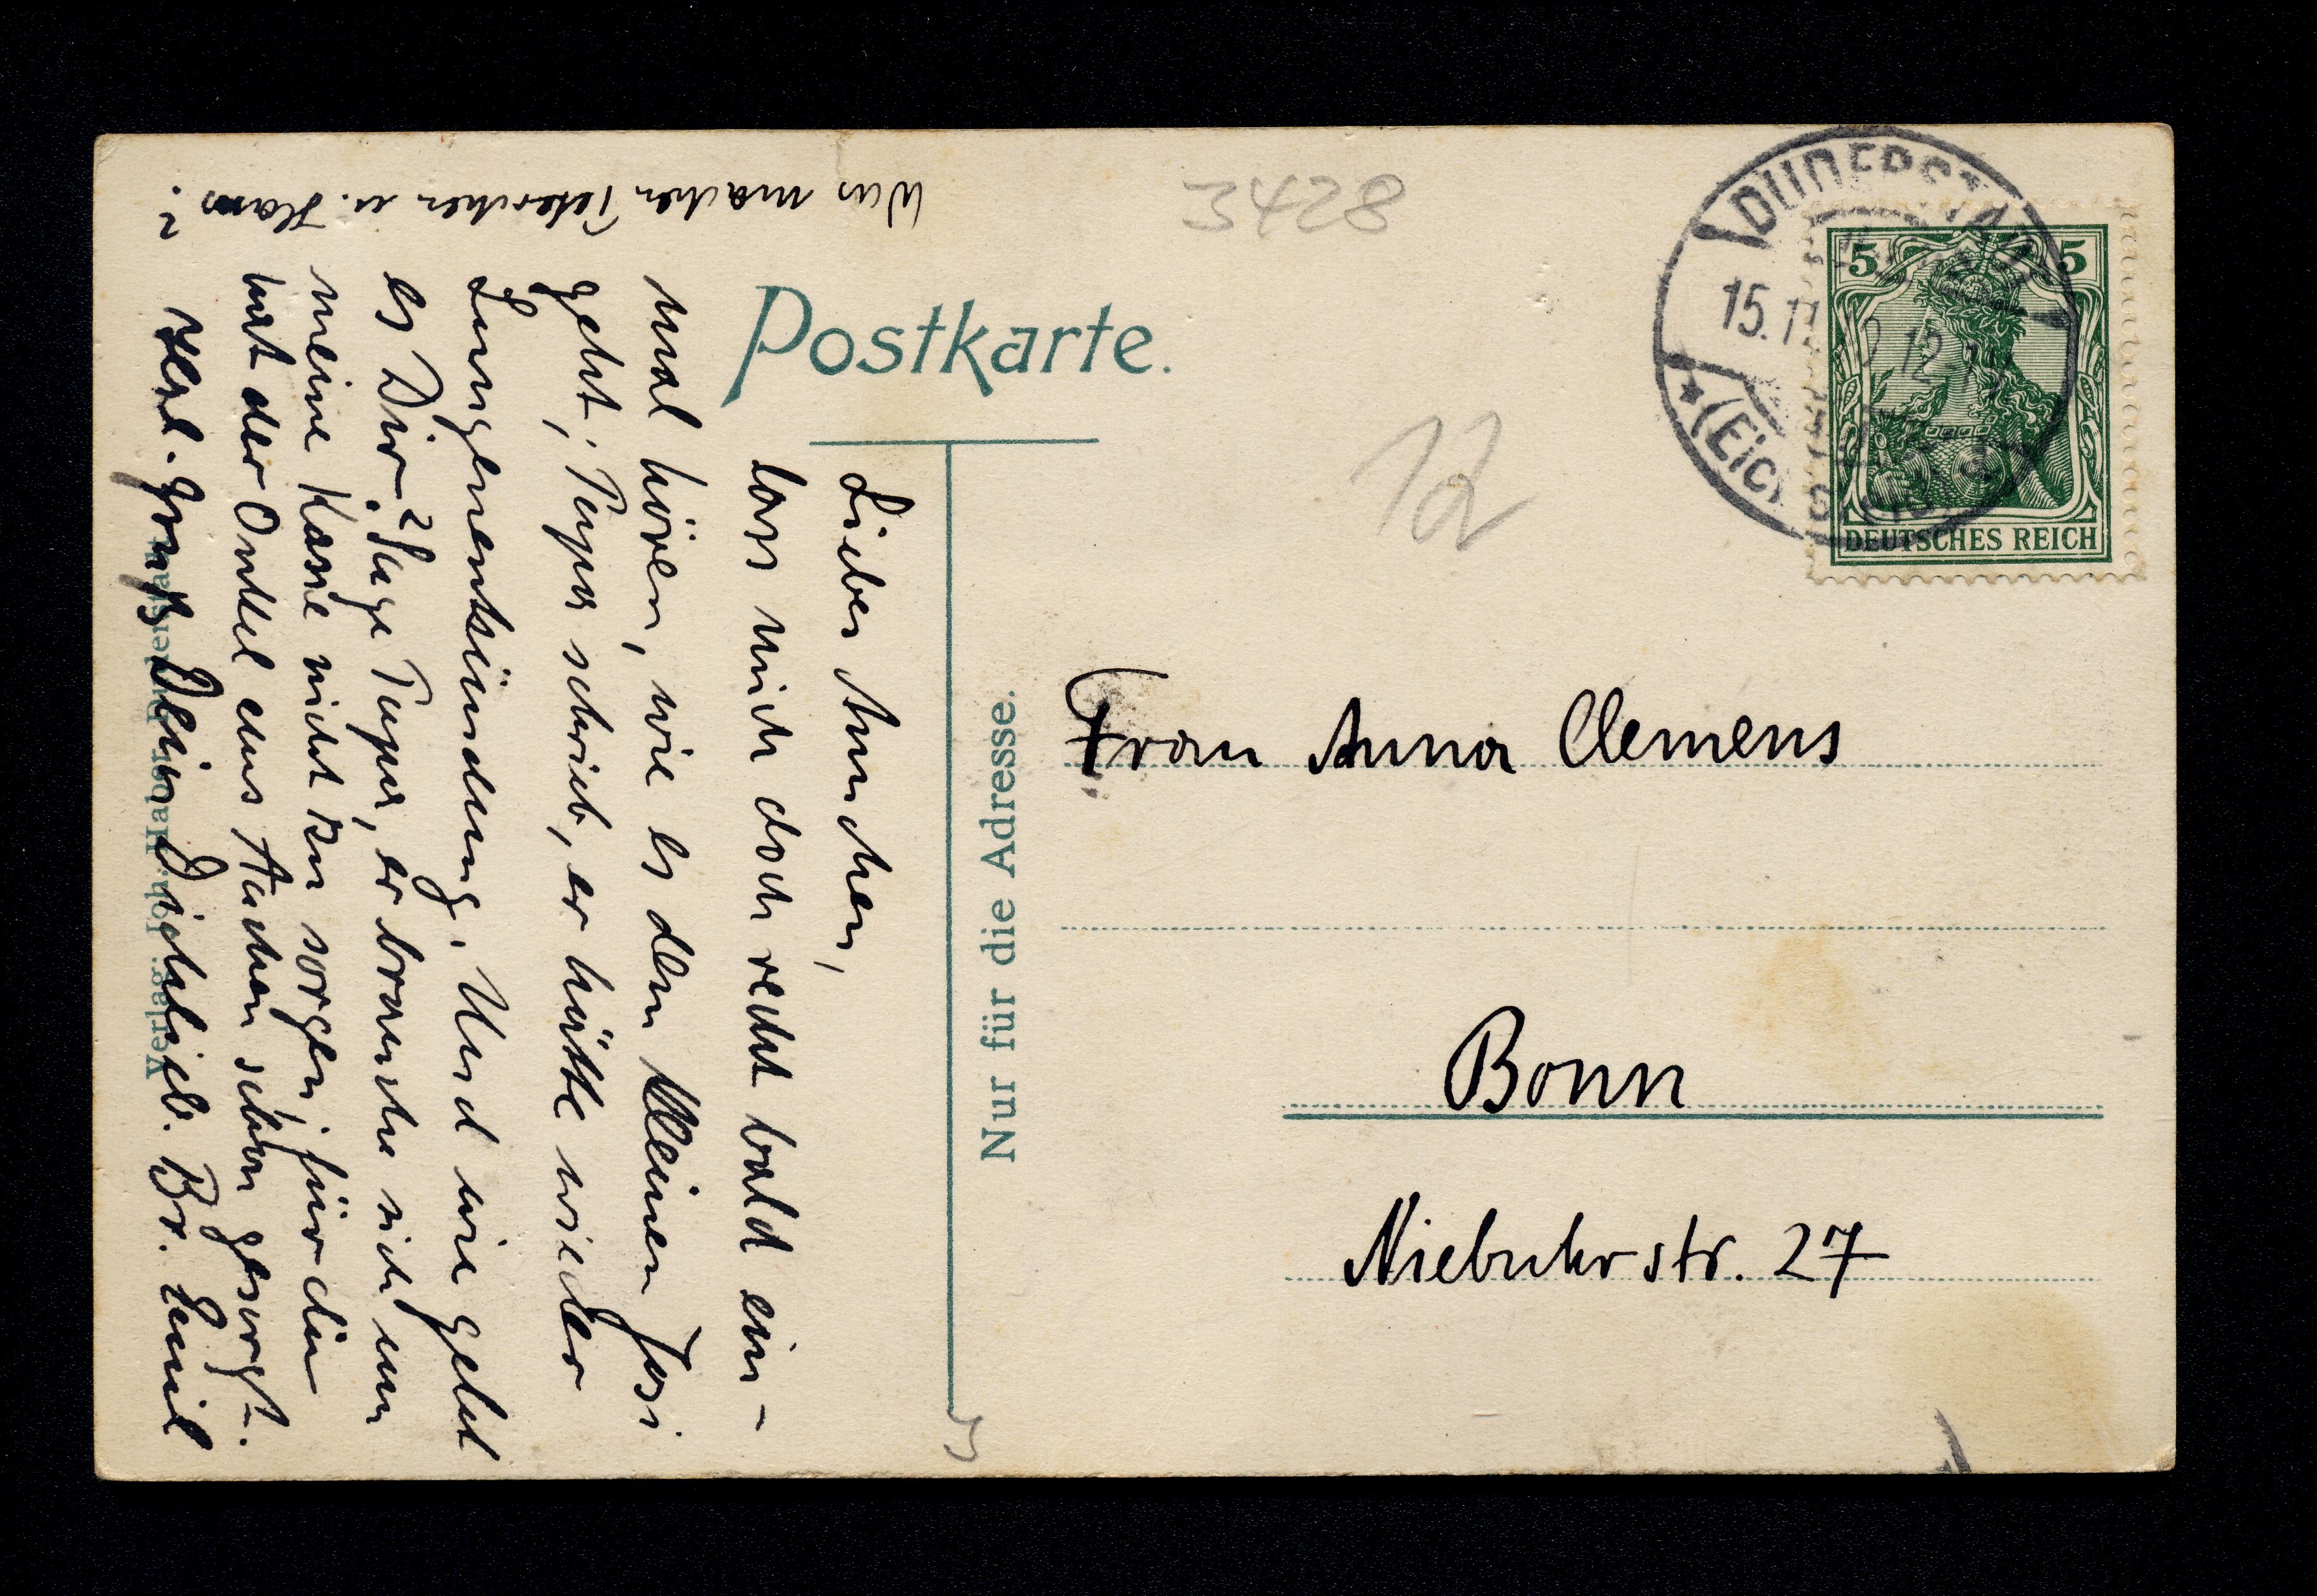 3428
DUDERSTADT
15.11
12-1N
(Eichsfeld)
5 5
DEUTSCHES REICH
Postkarte.
12
Nur für die Adresse.
Frau Anna Clemens
Bonn
Niebuhrstr. 27
Lieber Annchen,
lass mich doch recht bald ein-
mal hören, wie es dem kleinen Josi
geht; Papa schrieb, er hätte wieder
Lungenentzündung. Und wie geht
es Dir? Sage Papa, er brauche sich um
meine Kasse nicht zu sorgen; für die
hat der Onkel aus Aachen schon gesorgt.
Herzl. Gruß Dein Dichlieb. Br. Emil
Was machen Peterchen u. Hans
?
Verlag: